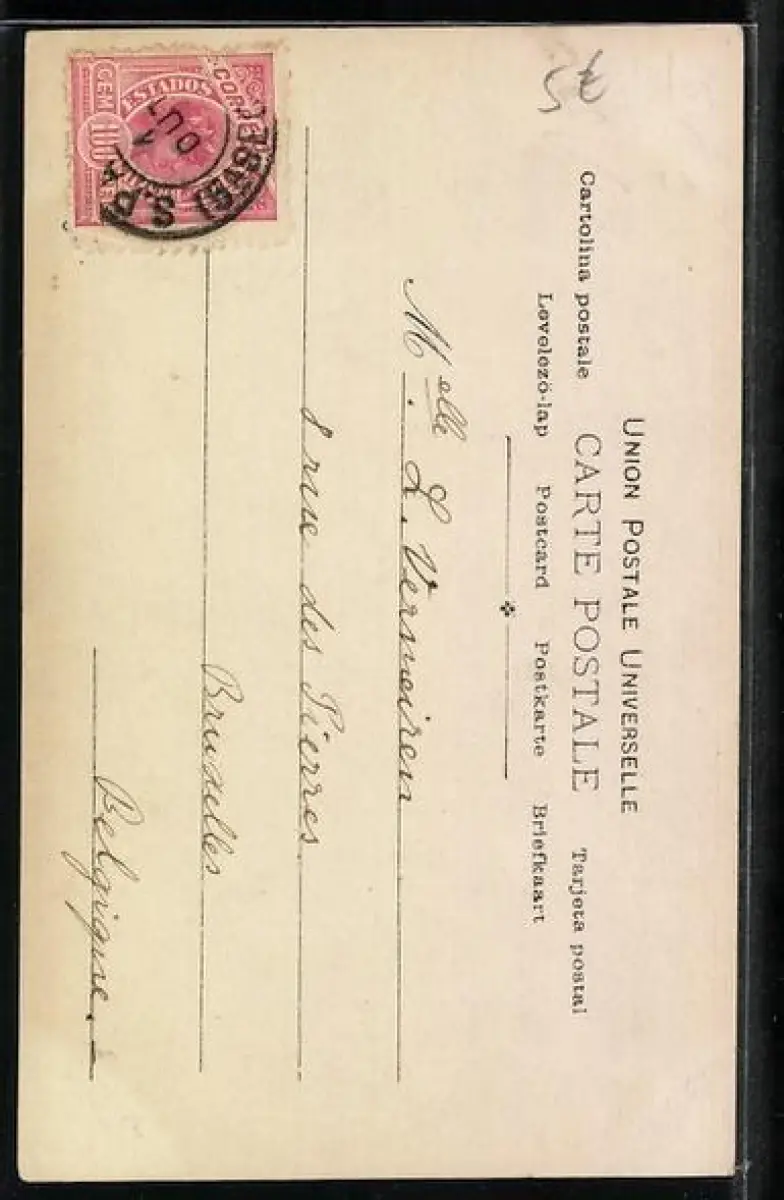 UNION POSTALE UNIVERSELLE
Cartolina postale CARTE POSTALE Tarjeta postal
Levelezö-lap Postcard Postkarte Briefkaart
Melle L. Vermeiren
8 rue des Pierres
Bruxelles
Belgique.
CORREIO
ESTADOS
CEM 100
1
OUT